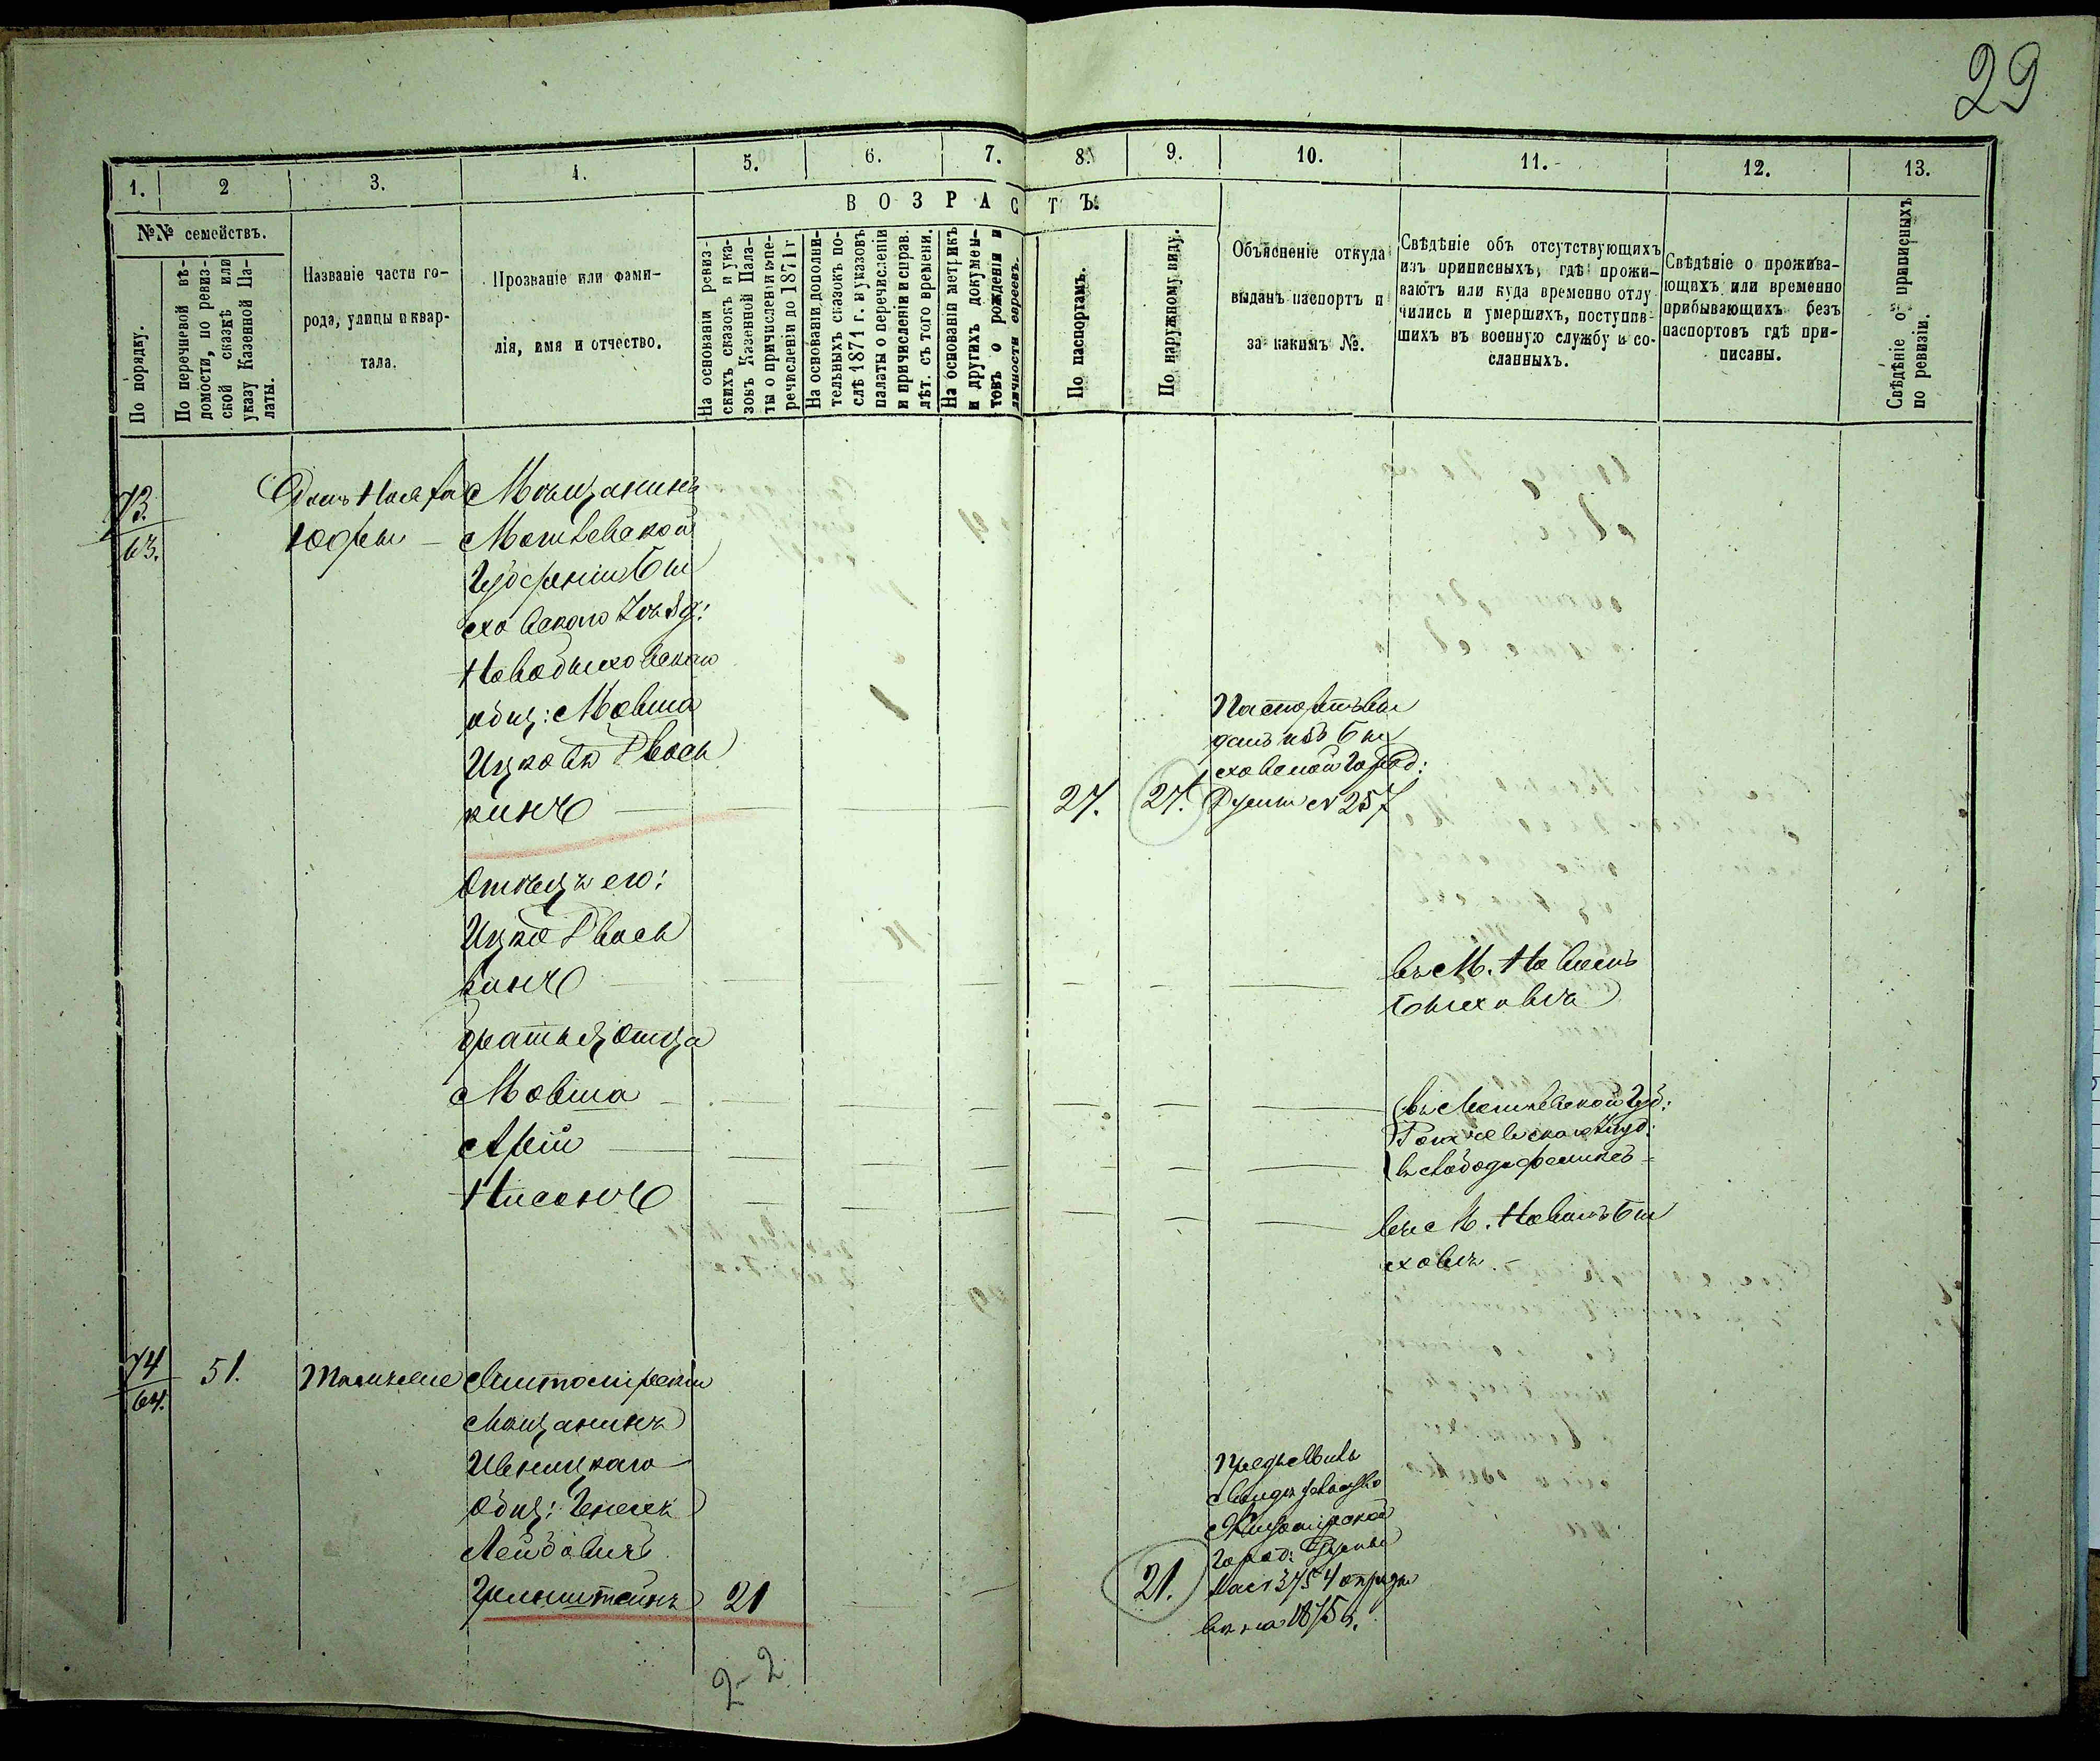 29
1. 2 3. 4. 5. 6. 7. 8. 9. 10. 11. 12. 13.
ВОЗРАСТЪ.
№№ семействъ.
По порядку.
По перечневой вѣ-
домости, по ревиз-
ской сказкѣ или
указу Казенной Па-
латы.
Названіе части го-
рода, улицы и квар-
тала.
Прозваніе или фами-
лія, имя и отчество.
На основаніи ревиз-
скихъ сказокъ и ука-
зовъ Казенной Пала-
ты о причисленіи и пе-
речисленіи до 1871 г
На основаніи дополни-
тельныхъ сказокъ по-
слѣ 1871 г. и указовъ
палаты о перечисленіи
и причисленіи и справ.
лѣт. съ того времени.
На основаніи метрикъ
и другихъ докумен-
товъ о рожденіи и
личности евреевъ.
По паспортамъ.
По наружному виду.
Объясненіе откуда
выданъ паспортъ и
за какимъ №.
Свѣдѣніе объ отсутствующихъ
изъ приписныхъ, гдѣ прожи-
ваютъ или куда временно отлу
чились и умершихъ, поступив-
шихъ въ военную службу и со-
сланныхъ.
Свѣдѣніе о прожива-
ющихъ или временно
прибывающихъ безъ
паспортовъ гдѣ при-
писаны.
Свѣдѣніе о приписныхъ
по ревизіи.
73.
63.
Домъ
Мѣщанинъ
Могилевской
Губерніи Бы
ховскаго Уѣзд:
Новобыховскаго
общ: Мовша
Ицковъ Двось
кинъ
27. 27.
Паспортъ вы
данъ изъ Бы
ховской Город:
Думы № 257
Отецъ его:
Ицко Двось
кинъ
въ М. Новомъ
Быховѣ
братья отца
Мовша
въ Могилевской Губ:
Арій
Рогачевскаго Уѣзд:
въ слободѣ
Нисонъ
въ М. Новомъ Бы
ховѣ
74
64.
51.
Житомірскій
Мѣщанинъ
Ивницкаго
общ:
Лейбовичъ
21
21.
Предъявилъ
свидѣтельство
Житомірской
Город: Думы
за № 3754
на 1875 г.
2-2